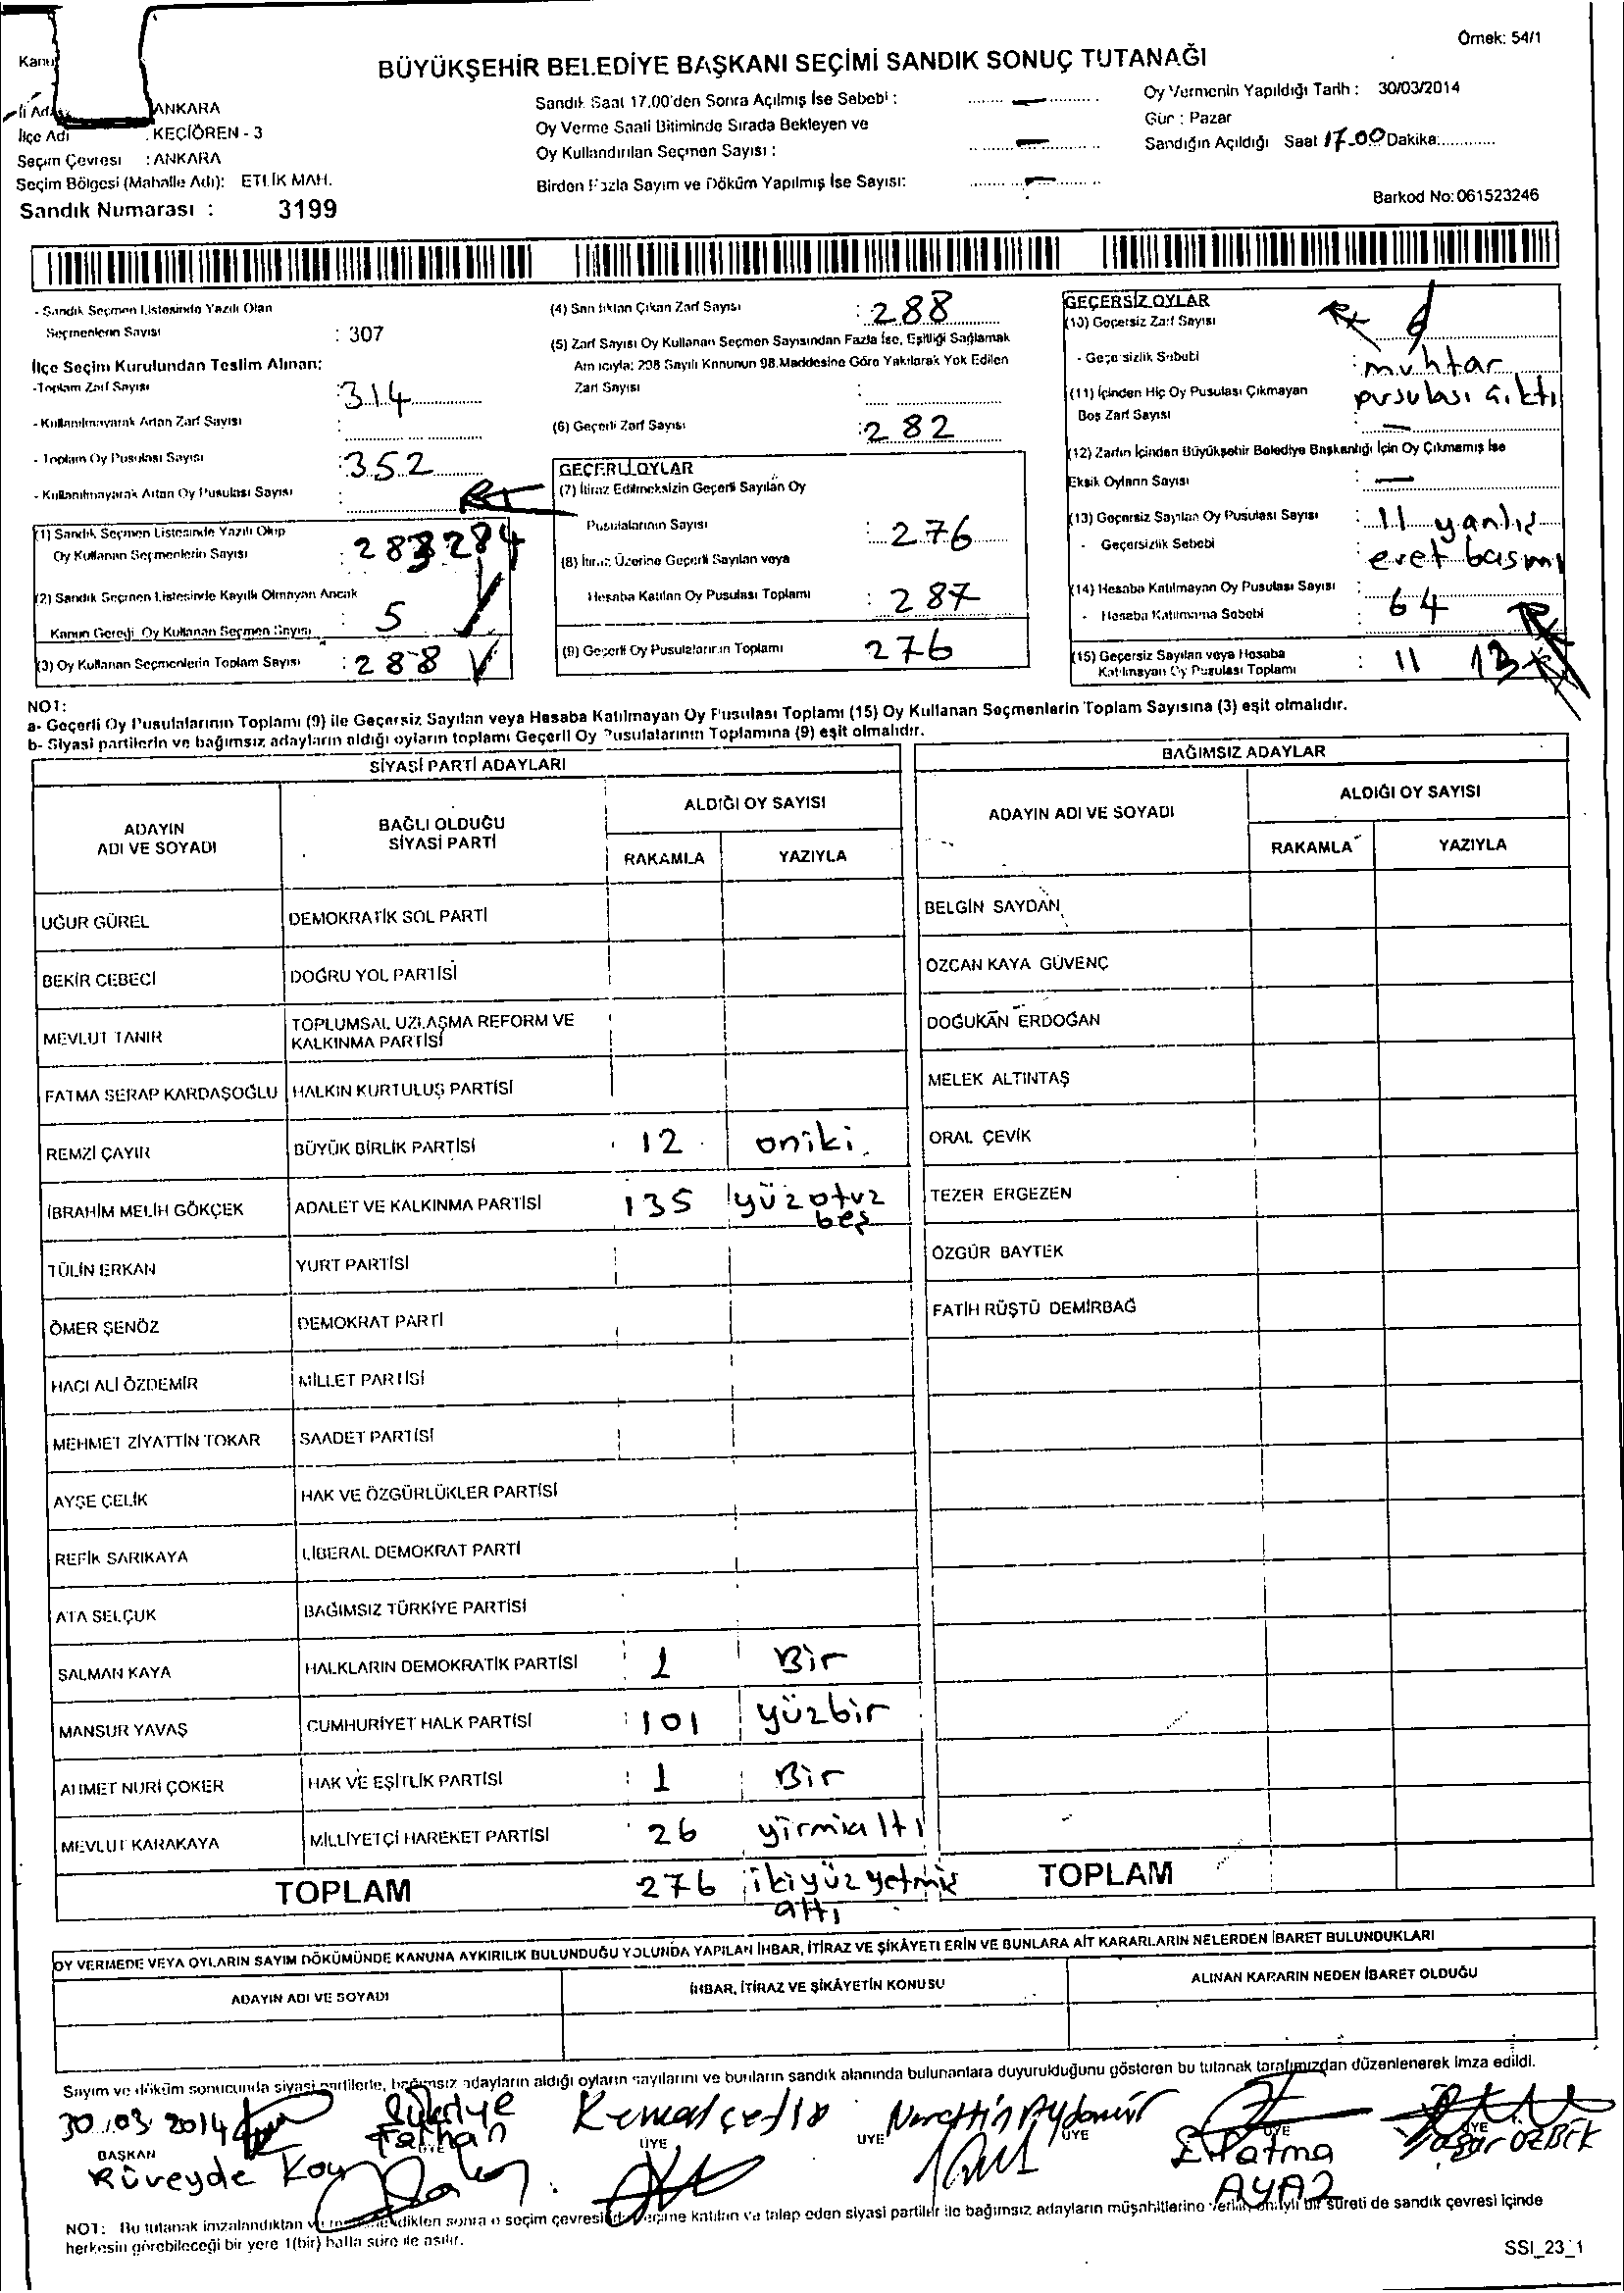 Örnek: 54/1
BÜYÜKŞEHİR BELEDİYE BAŞKANI SEÇİMİ SANDIK SONUÇ TUTANAĞI
ANKARA
İlçe Adı : KEÇİÖREN - 3
Seçim Çevresi : ANKARA
Seçim Bölgesi (Mahalle Adı): ETLİK MAH.
Sandık Numarası : 3199
Sandık Saat 17.00'den Sonra Açılmış İse Sebebi :
Oy Verme Saati Bitiminde Sırada Bekleyen ve
Oy Kullandırılan Seçmen Sayısı :
Birden Fazla Sayım ve Döküm Yapılmış İse Sayısı:
Oy Vermenin Yapıldığı Tarih : 30/03/2014
Gün : Pazar
Sandığın Açıldığı Saat 17.00 Dakika:
Barkod No: 061523246
- Sandık Seçmen Listesinde Yazılı Olan
Seçmenlerin Sayısı : 307
İlçe Seçim Kurulundan Teslim Alınan:
-Toplam Zarf Sayısı : 314
- Kullanılmayarak Artan Zarf Sayısı :
- Toplam Oy Pusulası Sayısı : 352
- Kullanılmayarak Artan Oy Pusulası Sayısı :
(1) Sandık Seçmen Listesinde Yazılı Olup
Oy Kullanan Seçmenlerin Sayısı : 283 284
(2) Sandık Seçmen Listesinde Kayıtlı Olmayan Ancak
Kanun Gereği Oy Kullanan Seçmen Sayısı : 5
(3) Oy Kullanan Seçmenlerin Toplam Sayısı : 288
(4) Sandıktan Çıkan Zarf Sayısı : 288
(5) Zarf Sayısı Oy Kullanan Seçmen Sayısından Fazla İse, Eşitliği Sağlamak
Amacıyla; 298 Sayılı Kanunun 98.Maddesine Göre Yakılarak Yok Edilen
Zarf Sayısı :
(6) Geçerli Zarf Sayısı : 282
GEÇERLİ OYLAR
(7) İtiraz Edilmeksizin Geçerli Sayılan Oy
Pusulalarının Sayısı : 276
(8) İtiraz Üzerine Geçerli Sayılan veya
Hesaba Katılan Oy Pusulası Toplamı : 287
(9) Geçerli Oy Pusulalarının Toplamı 276
GEÇERSİZ OYLAR
(10) Geçersiz Zarf Sayısı
- Geçersizlik Sebebi : muhtar
pusulası çıktı
(11) İçinden Hiç Oy Pusulası Çıkmayan
Boş Zarf Sayısı
(12) Zarfın İçinden Büyükşehir Belediye Başkanlığı İçin Oy Çıkmamış İse
Eksik Oyların Sayısı :
(13) Geçersiz Sayılan Oy Pusulası Sayısı : 11 yanlış
- Geçersizlik Sebebi : evet basmı
(14) Hesaba Katılmayan Oy Pusulası Sayısı : 64
- Hesaba Katılmama Sebebi :
(15) Geçersiz Sayılan veya Hesaba
Katılmayan Oy Pusulası Toplamı : 11 13
NOT:
a- Geçerli Oy Pusulalarının Toplamı (9) ile Geçersiz Sayılan veya Hesaba Katılmayan Oy Pusulası Toplamı (15) Oy Kullanan Seçmenlerin Toplam Sayısına (3) eşit olmalıdır.
b- Siyasi partilerin ve bağımsız adayların aldığı oyların toplamı Geçerli Oy Pusulalarının Toplamına (9) eşit olmalıdır.
SİYASİ PARTİ ADAYLARI
ADAYIN
ADI VE SOYADI
BAĞLI OLDUĞU
SİYASİ PARTİ
ALDIĞI OY SAYISI
RAKAMLA YAZIYLA
UĞUR GÜREL DEMOKRATİK SOL PARTİ
BEKİR CEBECİ DOĞRU YOL PARTİSİ
MEVLUT TANIR TOPLUMSAL UZLAŞMA REFORM VE
KALKINMA PARTİSİ
FATMA SERAP KARDAŞOĞLU HALKIN KURTULUŞ PARTİSİ
REMZİ ÇAYIR BÜYÜK BİRLİK PARTİSİ 12 oniki
İBRAHİM MELİH GÖKÇEK ADALET VE KALKINMA PARTİSİ 135 yüzotuz
beş
TÜLİN ERKAN YURT PARTİSİ
ÖMER ŞENÖZ DEMOKRAT PARTİ
HACI ALİ ÖZDEMİR MİLLET PARTİSİ
MEHMET ZİYATTİN TOKAR SAADET PARTİSİ
AYŞE ÇELİK HAK VE ÖZGÜRLÜKLER PARTİSİ
REFİK SARIKAYA LİBERAL DEMOKRAT PARTİ
ATA SELÇUK BAĞIMSIZ TÜRKİYE PARTİSİ
SALMAN KAYA HALKLARIN DEMOKRATİK PARTİSİ 1 Bir
MANSUR YAVAŞ CUMHURİYET HALK PARTİSİ 101 yüzbir
AHMET NURİ ÇOKER HAK VE EŞİTLİK PARTİSİ 1 Bir
MEVLUT KARAKAYA MİLLİYETÇİ HAREKET PARTİSİ 26 yirmialtı
TOPLAM 276 ikiyüzyetmiş
altı
BAĞIMSIZ ADAYLAR
ADAYIN ADI VE SOYADI
ALDIĞI OY SAYISI
RAKAMLA YAZIYLA
BELGİN SAYDAN
ÖZCAN KAYA GÜVENÇ
DOĞUKAN ERDOĞAN
MELEK ALTINTAŞ
ORAL ÇEVİK
TEZER ERGEZEN
ÖZGÜR BAYTEK
FATİH RÜŞTÜ DEMİRBAĞ
TOPLAM
OY VERMEDE VEYA OYLARIN SAYIM DÖKÜMÜNDE KANUNA AYKIRILIK BULUNDUĞU YOLUNDA YAPILAN İHBAR, İTİRAZ VE ŞİKÂYETLERİN VE BUNLARA AİT KARARLARIN NELERDEN İBARET BULUNDUKLARI
ADAYIN ADI VE SOYADI
İHBAR, İTİRAZ VE ŞİKÂYETİN KONUSU
ALINAN KARARIN NEDEN İBARET OLDUĞU
Sayım ve döküm sonucunda siyasi partilerle, bağımsız adayların aldığı oyların sayılarını ve bunların sandık alanında bulunanlara duyurulduğunu gösteren bu tutanak tarafımızdan düzenlenerek imza edildi.
30.03.2014
BAŞKAN ÜYE ÜYE ÜYE ÜYE ÜYE
Rüveyde Koç
Nurettin Aydemir
Fatma
AYAZ
Yaşar ÖZBEK
NOT: Bu tutanak imzalandıktan sonra o seçim çevresinde seçime katılan ve talep eden siyasi partiler ile bağımsız adayların müşahitlerine verilir, onaylı bir sureti de sandık çevresi içinde
herkesin görebileceği bir yere 1(bir) hafta süre ile asılır.
SSI_23_1